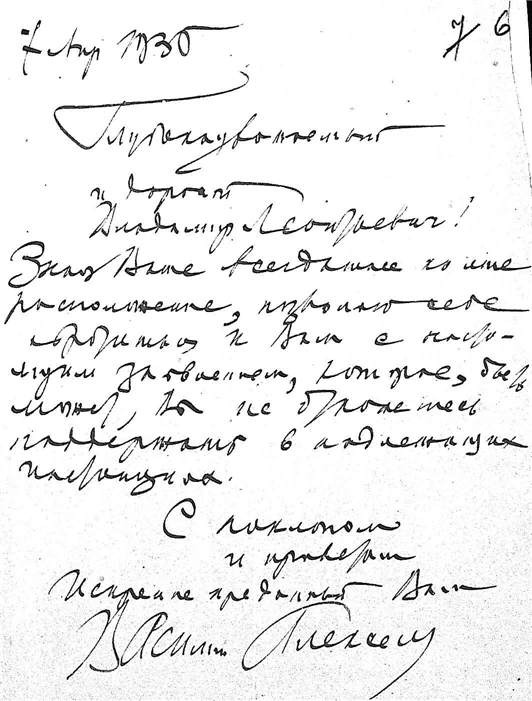 7 Апр 1936
7 6
Глубокоуважаемый
и дорогой
Владимир Леонтьевич!
Зная Ваше всегдашнее ко мне
расположение, позволяю себе
обратиться к Вам с насто-
ящим заявлением, которое, быть
может, Вы не откажетесь
поддержать в надлежащих
инстанциях.
С поклоном
и приветом
Искренне преданный Вам
Василий Алексеев